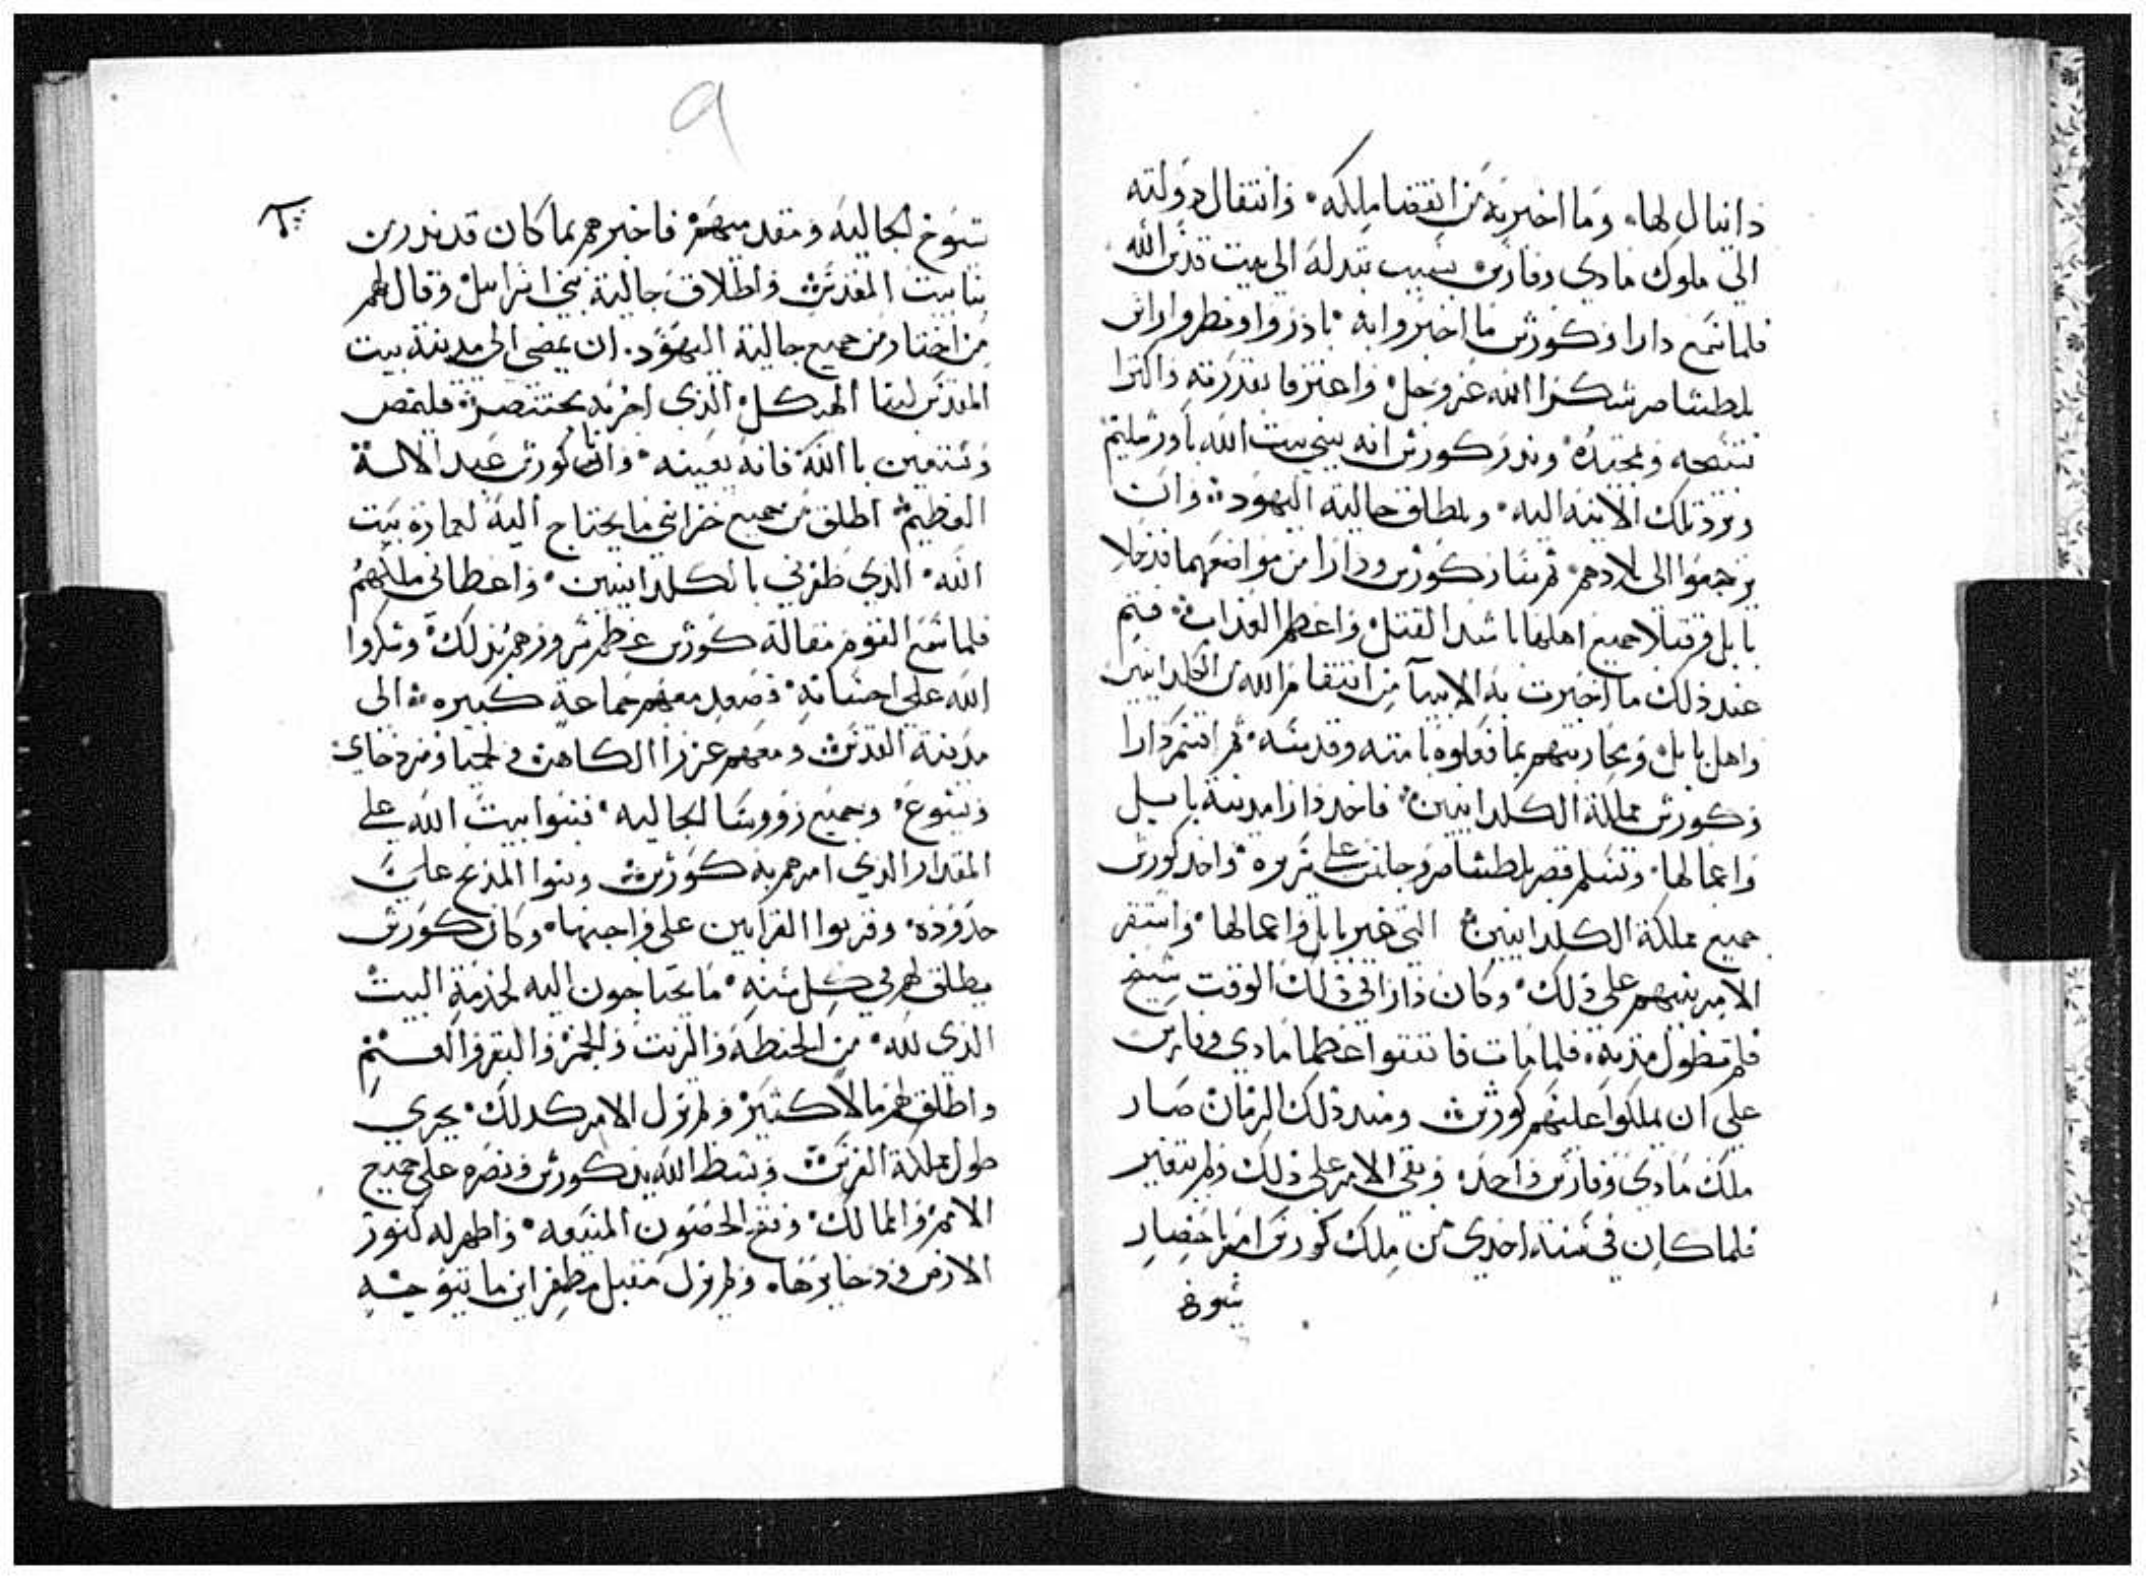 دانيال لها، وما اخبر به من انقضا ملكه. وانتقال دولته
الي ملوك مادي وفارس بسبب تبدله الي بيت قدس الله
فلما سمع دارا وكورش ما اخبروا به بادروا ونظروا راس
بلطشاصر شكرا الله عز وجل واعترفا بقدرته واكثرا
تسبيحه وتمجيده وندر كورش انه يبني بيت الله باورشليم
ويرد تلك الانيه اليه. ويطلق جالية اليهود وان
يرجعوا الى بلادهم. ثم سار كورش ودارا من مواضعهما فدخلا
بابل وقتلا جميع اهلها باشد القتل واعظم العذاب فتم
عند ذلك ما اخبرت به الانبيآ من انتقام الله من الكلدانيين
واهل بابل ومجازيتهم بما فعلوه بامته وقدسه. ثم اقتسم دارا
وكورش مملكة الكلدانيين. فاخد دارا مدينة بابل
واعمالها. وتسلم قصر بلطشاصر وجلس على سريره واخد كورش
جميع مملكة الكلدانيين التي غير بابل واعمالها. واستقر
الامر بينهم على ذلك. وكان دارا في ذلك الوقت شيخ
فلم تطول مدته، فلما مات فاتفقوا عظما مادي وفارس
على ان يملكوا عليهم كورش ومند ذلك الزمان صار
ملك مادي وفارس واحد. وبقي الامر على ذلك ولم يتغير
فلما كان في سنة احدى من ملك كورش امر باحضار
شيوخ
٩
شيوخ الجاليه ومقدميهم فاخبرهم بما كان قد ندر من
بنا بيت المقدس واطلاق جالية بني اسراييل وقال لهم
من اختار من جميع جالية اليهود. ان يمضي الى مدينة بيت
المقدس لبنا الهيكل الدي اخربه بختنصر فليمض
ويستعين بالله فانه يعينه. وانا كورش عبد الالاه
العظيم اطلق من جميع خزايني ما يحتاج اليه لعمارة بيت
الله. الدي ظفرني بالكلدانيين. واعطاني ملكهم
فلما سمع القوم مقالة كورش عظم سرورهم بذلك وشكروا
الله على احسانه. فصعد معهم جماعة كبيره الى
مدينة القدس ومعهم عزرا الكاهن ونحميا ومردخاي
ويشوع. وجميع رووسا الجاليه. فبنوا بيت الله على
المقدار الدي امرهم به كورش وبنوا المذبح على
حدوده. وقربوا القرابين على واجبها. وكان كورش
يطلق لهم في كل سنه. ما يحتاجون اليه لخدمة البيت
الذي لله. من الحنطه والزيت والخمر والبقر والغنم
واطلق لهم مالا كثير ولم يزل الامر كدلك. يجري
طول مملكة الفرس وبسط الله يد كورش ونصره على جميع
الامم والممالك. وفتح الحصون المنيعه. واظهر له كنوز
الارض ودخايرها. ولم يزل مقبل مظفر اين ما توجه